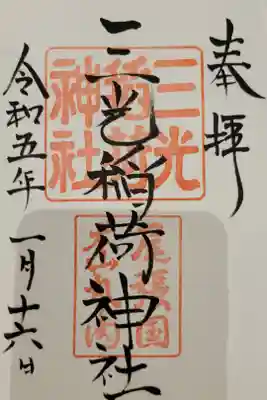 奉拝
三光稲荷神社
三光稲荷神社
令和五年 一月十六日